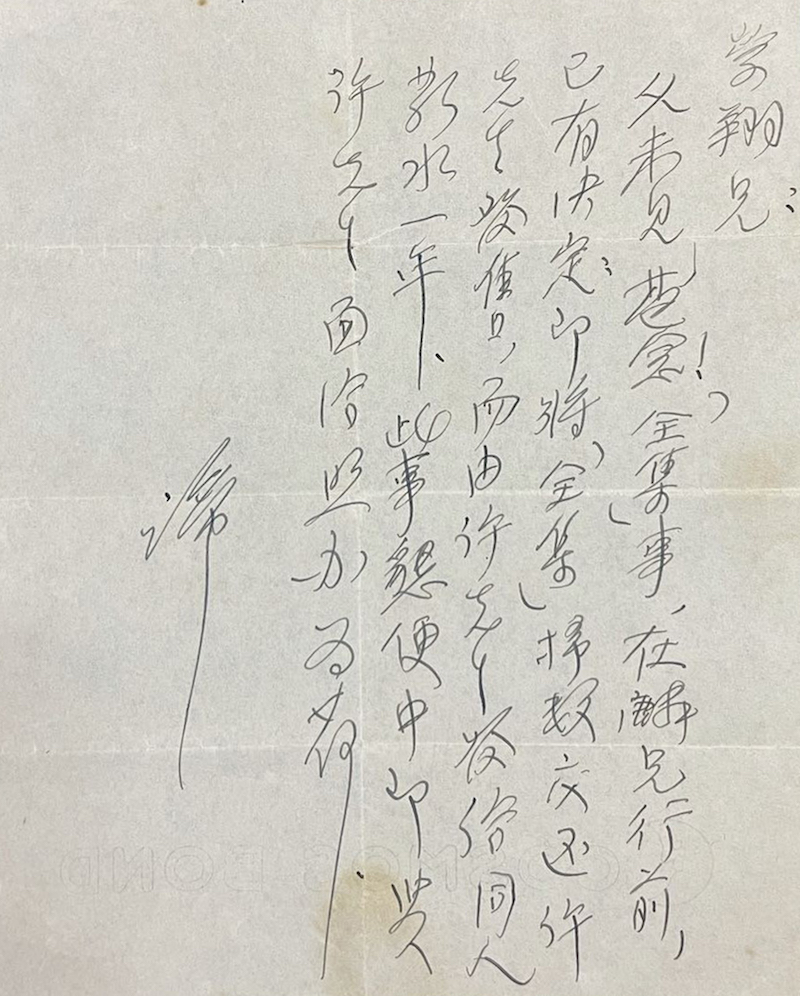 学翔兄：
久未见，甚念！「全集」事，在麟兄行前，
已有决定：即将「全集」扫数交还许
先生发售，而由许先生发给同人
薪水一年、此事恳便中即与
许先生面洽照办为荷、
谛